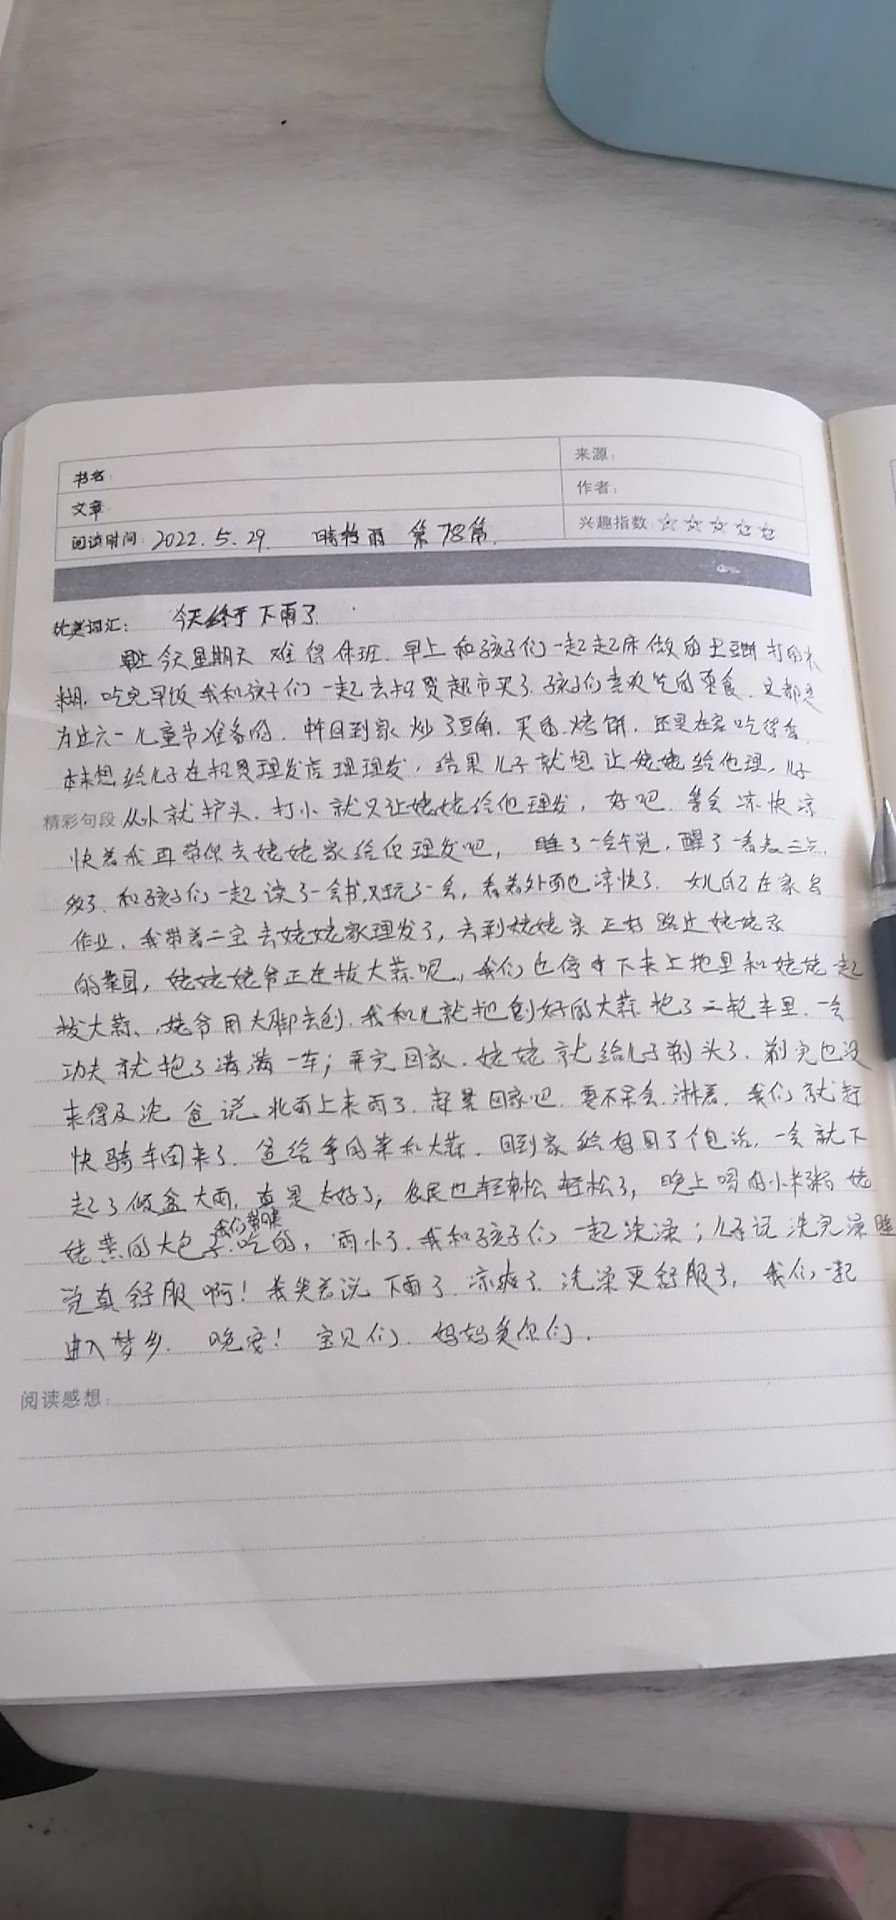 书名:
来源:
文章
作者:
阅读时间: 2022.5.29. 晴转雨 第78篇.
兴趣指数:☆☆☆☆☆
优美词汇: 今天终于下雨了.
今天星期天 难得休班. 早上和孩子们一起起床做的土豆饼 打的米
糊. 吃完早饭我和孩子们一起去 超市买了 孩子们喜欢吃的零食. 又都是
为过六一儿童节准备的. 中午回到家 炒了豆角. 买的烤饼. 还是在家吃得香.
本来想给儿子在 理发店理理发, 结果儿子就想让姥姥给他理, 儿子
精彩句段 从小就护头. 打小就只让姥姥给他理发, 好吧. 等会凉快凉
快着我再带你去姥姥家给你理发吧, 睡了一会午觉. 醒了一看表三点
多了. 和孩子们一起读了一会书又玩了一会, 看着外面也凉快了. 女儿自己在家写
作业. 我带着二宝去姥姥家理发了, 去到姥姥家 正好路过姥姥家
的菜园, 姥姥姥爷正在拔大蒜呢, 我们也停下来上地里和姥姥一起
拔大蒜、姥爷用大脚去刨. 我和儿就把刨好的大蒜抱了三轮车里. 一会
功夫就抱了满满一车; 弄完回家. 姥姥就给儿子剃头了. 剃完也没
来得及洗 爸说 北面上来雨了. 赶紧回家吧. 要不来会淋着. 我们就赶
快骑车回来了. 爸给拿的菜和大蒜. 回到家 一会就下
起了倾盆大雨, 真是太好了, 农民也轻松轻松了, 晚上喝的小米粥 姥
姥蒸的大包子我们都喜吃的, 雨小了. 我和孩子们一起洗澡; 儿子说洗完澡睡
觉真舒服啊! 我笑着说 下雨了. 凉爽了. 洗澡更舒服了, 我们一起
进入梦乡. 晚安! 宝贝们. 妈妈爱你们.
阅读感想: